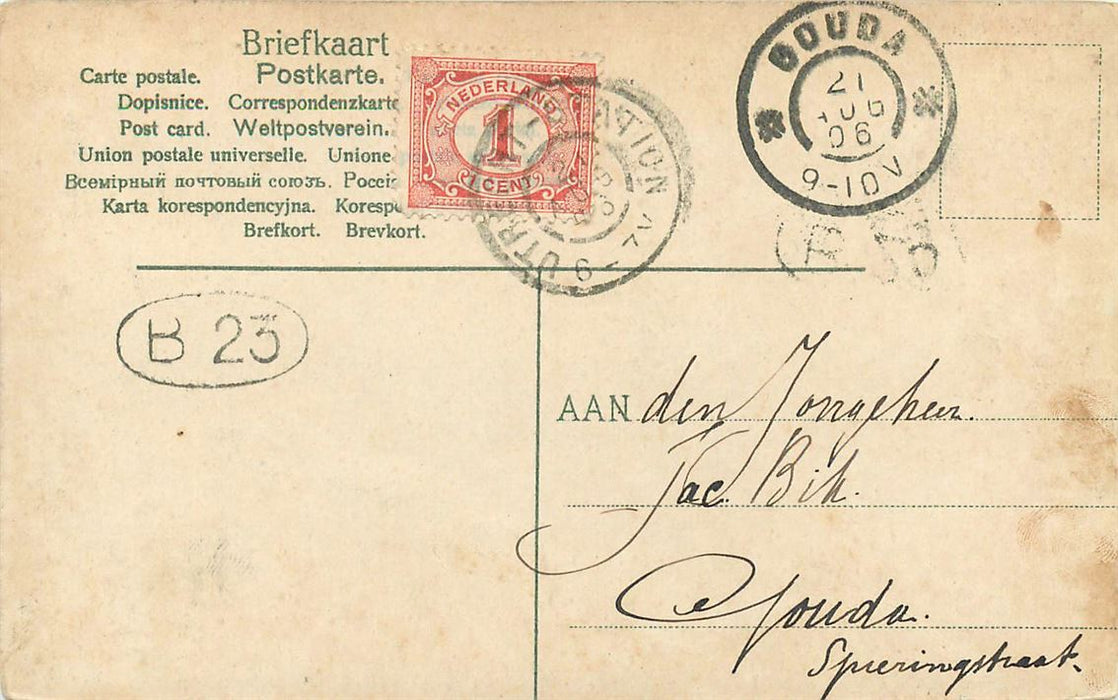 Briefkaart
Carte postale. Postkarte.
Dopisnice. Correspondenzkarte
Post card. Weltpostverein.
Union postale universelle. Unione
Всемірный почтовый союзъ. Россія
Karta korespondencyjna. Korespo
Brefkort. Brevkort.
NEDERLAND
1
1 CENT
6 - 7V
GOUDA
21
AUG
06
9-10V
B 23
AAN den Jongeheer.
Jac. Bik.
Gouda.
Spieringstraat.